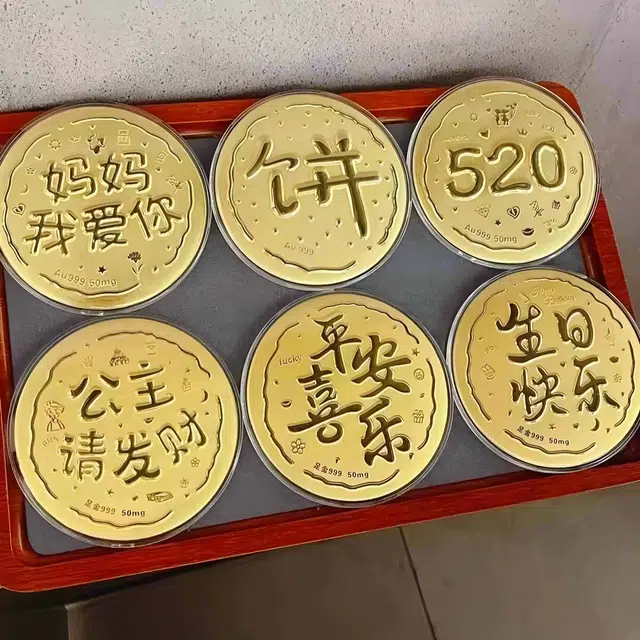 妈妈
我爱你
Au999 50mg
饼
Au 999
520
Au999 50mg
公主
请发财
足金999 50mg
lucky
平安
喜乐
足金999 50mg
生日
快乐
足金999 50mg